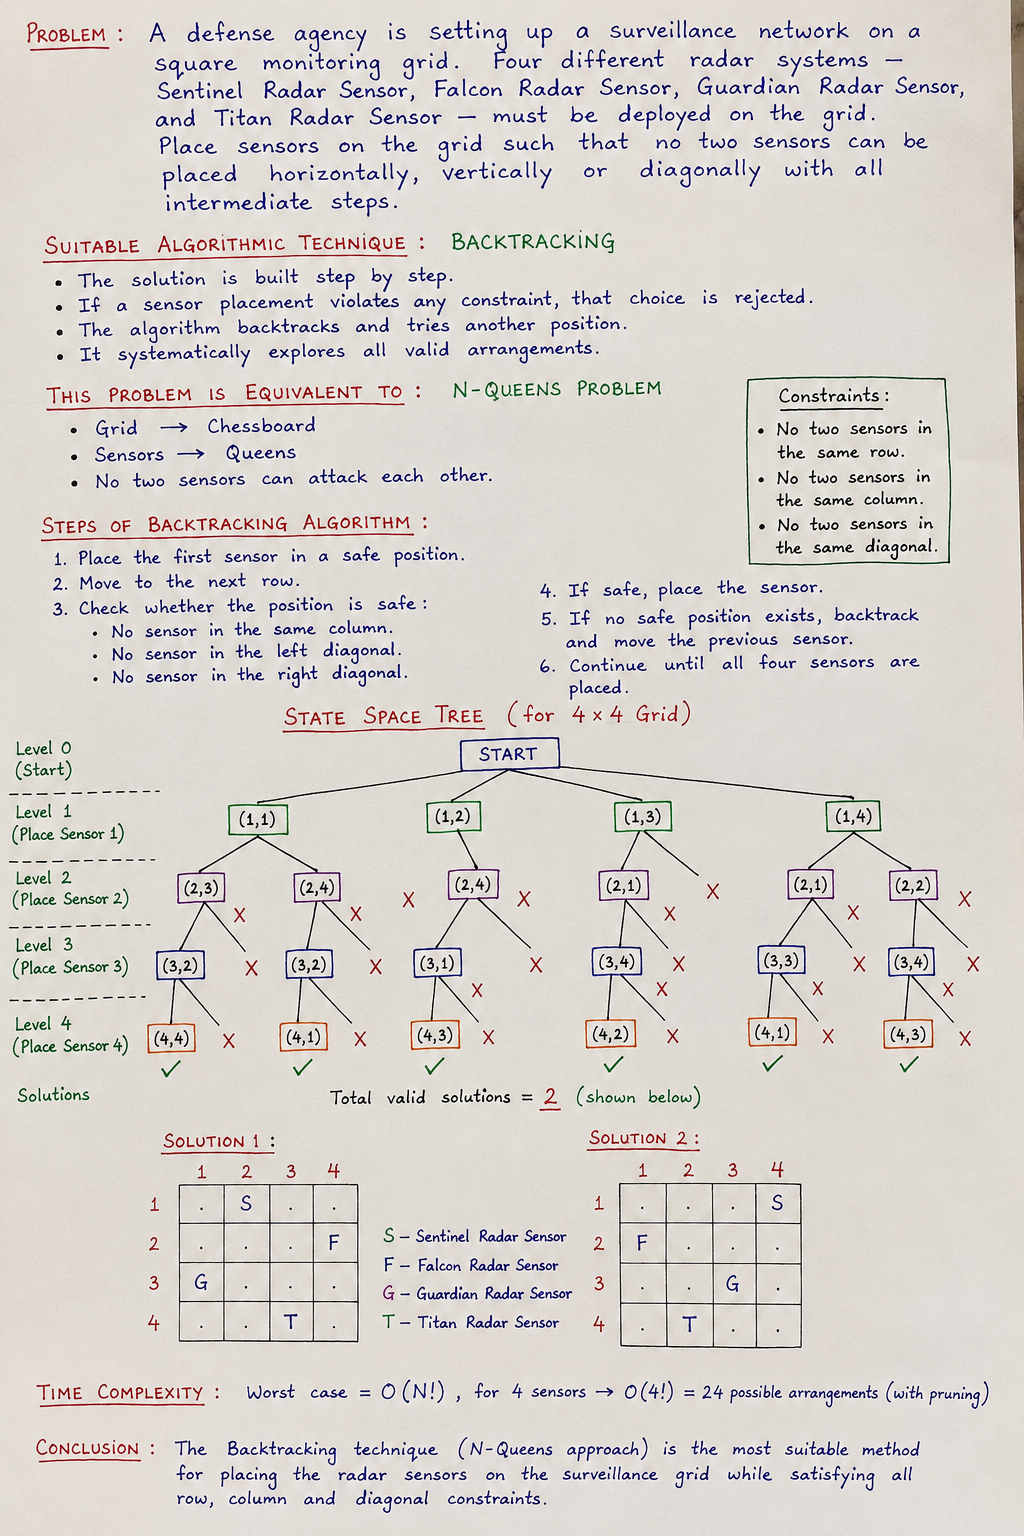 PROBLEM : A defense agency is setting up a surveillance network on a
square monitoring grid. Four different radar systems —
Sentinel Radar Sensor, Falcon Radar Sensor, Guardian Radar Sensor,
and Titan Radar Sensor — must be deployed on the grid.
Place sensors on the grid such that no two sensors can be
placed horizontally, vertically or diagonally with all
intermediate steps.
SUITABLE ALGORITHMIC TECHNIQUE : BACKTRACKING
• The solution is built step by step.
• If a sensor placement violates any constraint, that choice is rejected.
• The algorithm backtracks and tries another position.
• It systematically explores all valid arrangements.
THIS PROBLEM IS EQUIVALENT TO : N-QUEENS PROBLEM
• Grid → Chessboard
• Sensors → Queens
• No two sensors can attack each other.
Constraints :
• No two sensors in
the same row.
• No two sensors in
the same column.
• No two sensors in
the same diagonal.
STEPS OF BACKTRACKING ALGORITHM :
1. Place the first sensor in a safe position.
2. Move to the next row.
3. Check whether the position is safe :
• No sensor in the same column.
• No sensor in the left diagonal.
• No sensor in the right diagonal.
4. If safe, place the sensor.
5. If no safe position exists, backtrack
and move the previous sensor.
6. Continue until all four sensors are
placed.
STATE SPACE TREE (for 4 × 4 Grid)
Level 0
(Start)
START
Level 1
(Place Sensor 1)
(1,1) (1,2) (1,3) (1,4)
Level 2
(Place Sensor 2)
(2,3) X (2,4) X X (2,4) X (2,1) X X (2,1) X (2,2) X
Level 3
(Place Sensor 3)
(3,2) X (3,2) X (3,1) X X (3,4) X X (3,3) X X (3,4) X X
Level 4
(Place Sensor 4)
(4,4) X (4,1) X (4,3) X (4,2) X (4,1) X (4,3) X
✓ ✓ ✓ ✓ ✓ ✓
Solutions
Total valid solutions = 2 (shown below)
SOLUTION 1 :
1 2 3 4
1 . S . .
2 . . . F
3 G . . .
4 . . T .
S – Sentinel Radar Sensor
F – Falcon Radar Sensor
G – Guardian Radar Sensor
T – Titan Radar Sensor
SOLUTION 2 :
1 2 3 4
1 . . . S
2 F . . .
3 . . G .
4 . T . .
TIME COMPLEXITY : Worst case = O(N!) , for 4 sensors → O(4!) = 24 possible arrangements (with pruning)
CONCLUSION : The Backtracking technique (N-Queens approach) is the most suitable method
for placing the radar sensors on the surveillance grid while satisfying all
row, column and diagonal constraints.